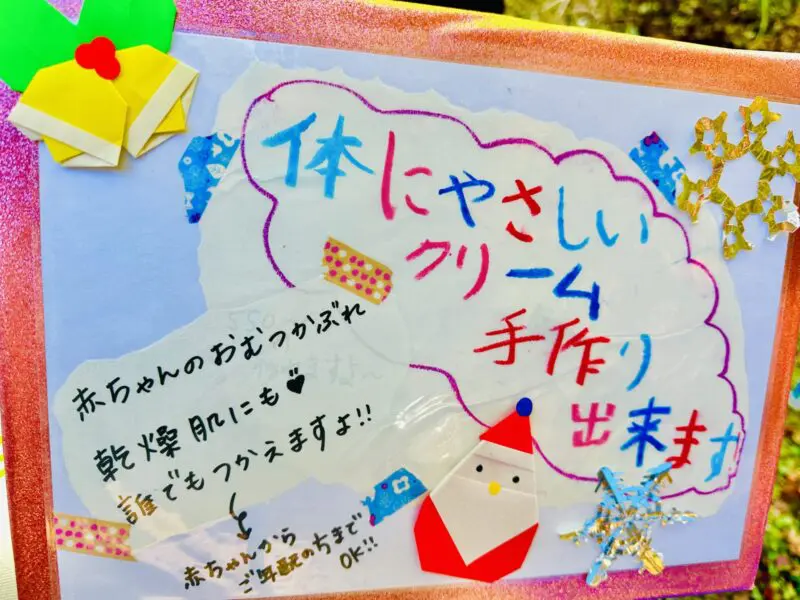 体にやさしい
クリーム
手作り
出来ます
赤ちゃんのおむつかぶれ
乾燥肌にも♥
誰でもつかえますよ!!
赤ちゃんから
ご年配のちまで
OK!!